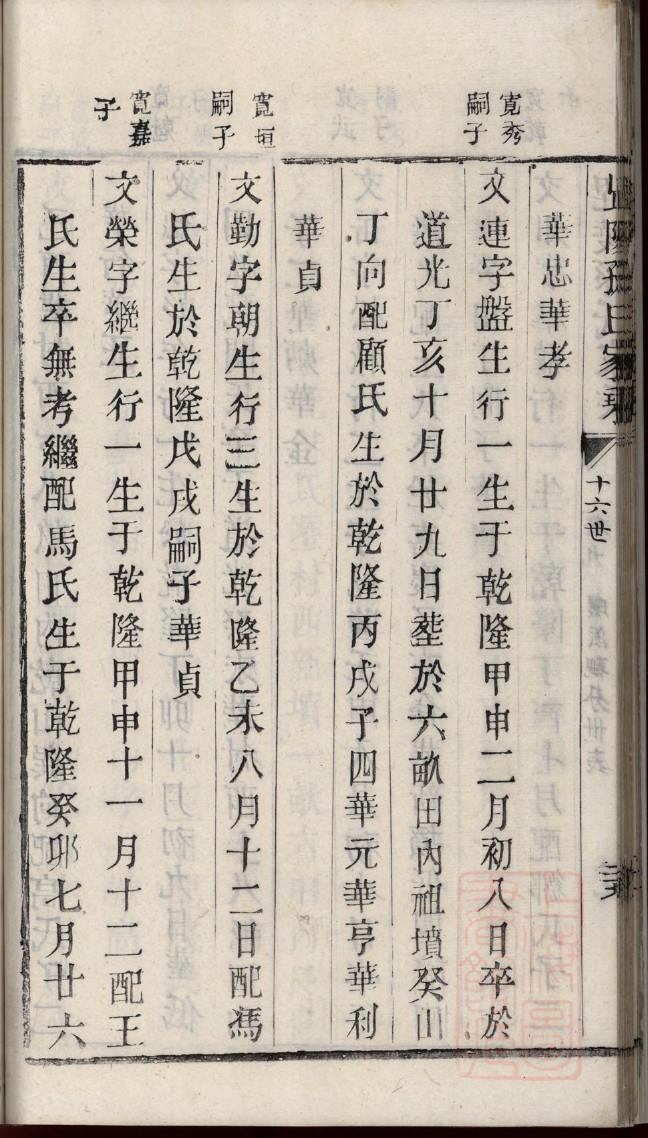 孫氏家乘
十六世
華忠華孝
寛秀
嗣子
文連字盤生行一生于乾隆甲申二月初八日卒於
道光丁亥十月廿九日塟於六畝田內祖墳癸山
丁向配顧氏生於乾隆丙戌子四華元華亨華利
華貞
寛垣
嗣子
文勤字朝生行三生於乾隆乙未八月十二日配馮
氏生於乾隆戊戌嗣子華貞
寛嘉
子
文榮字繼生行一生于乾隆甲申十一月十二配王
氏生卒無考繼配馬氏生于乾隆癸卯七月廿六